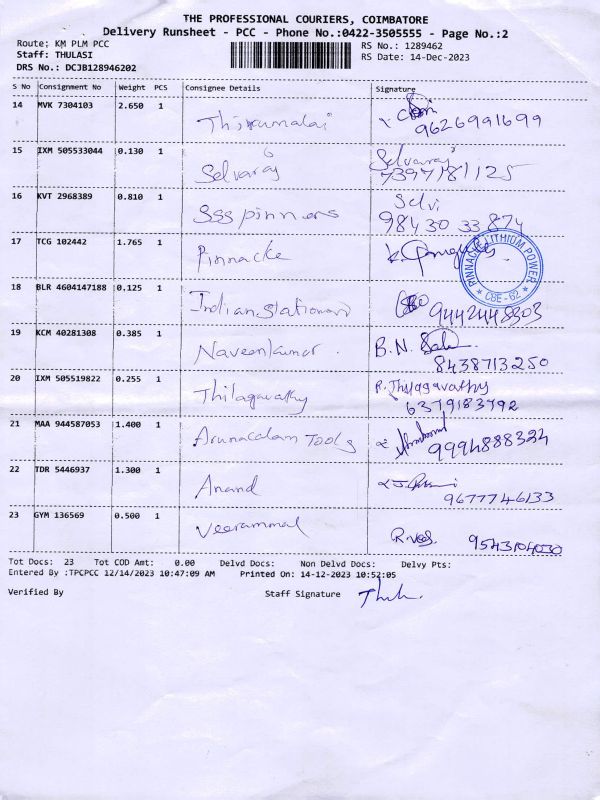 THE PROFESSIONAL COURIERS, COIMBATORE
Delivery Runsheet - PCC - Phone No.:0422-3505555 - Page No.:2
Route: KM PLM PCC
RS No.: 1289462
Staff: THULASI
RS Date: 14-Dec-2023
DRS No.: DCJB128946202
S No Consignment No Weight PCS Consignee Details Signature
14 MVK 7304103 2.650 1
Thirumalai 9626991699
15 IXM 505533044 0.130 1 Selvaraj
Selvaraj 7397181125
16 KVT 2968389 0.810 1 Selvi
SSSpinners 98430 33874
17 TCG 102442 1.765 1
Pinnacke
PINNACLE LITHIUM POWER
* CBE-62 *
18 BLR 4604147188 0.125 1
9442448303
19 KCM 40281308 0.385 1 B.N.
Naveenkumar. 8438713250
20 IXM 505519822 0.255 1 P. Thilagavathy
Thilagavathy 6379183792
21 MAA 944587053 1.400 1
Arunacalam Tools 9994888324
22 TDR 5446937 1.300 1
Anand 9677746133
23 GYM 136569 0.500 1
Veerammal 9543104030
Tot Docs: 23 Tot COD Amt: 0.00 Delvd Docs: Non Delvd Docs: Delvy Pts:
Entered By :TPCPCC 12/14/2023 10:47:09 AM Printed On: 14-12-2023 10:52:05
Verified By Staff Signature